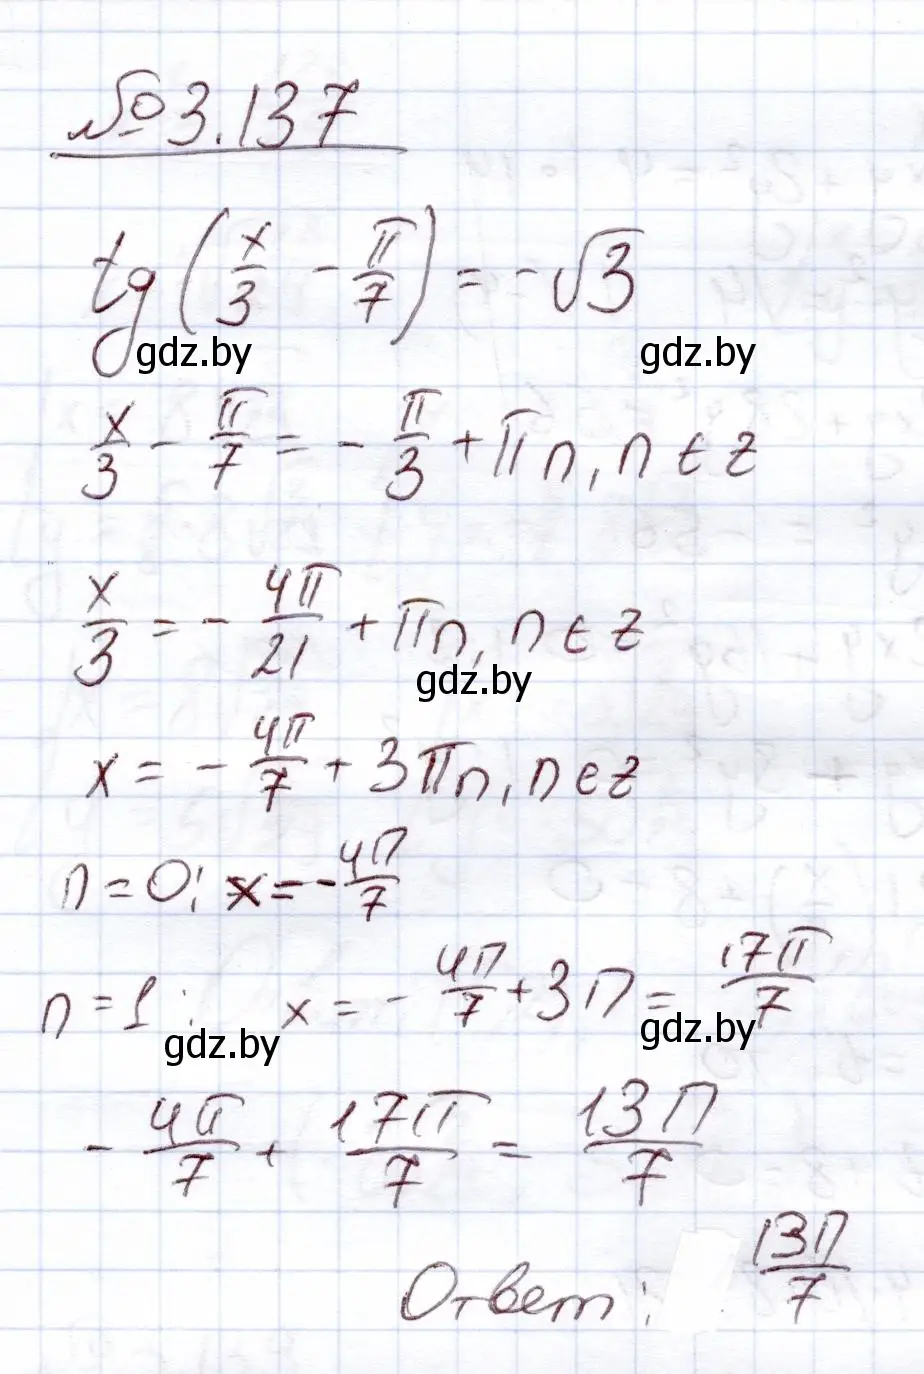 № 3.137
tg(x/3 - π/7) = -√3
gdz.by gdz.by
x/3 - π/7 = - π/3 + πn, n ∈ z
x/3 = - 4π/21 + πn, n ∈ z
gdz.by
x = - 4π/7 + 3πn, n ∈ z
n = 0; x = - 4π/7
n = 1: x = - 4π/7 + 3π = 17π/7
gdz.by gdz.by
- 4π/7 + 17π/7 = 13π/7
Ответ: 13π/7